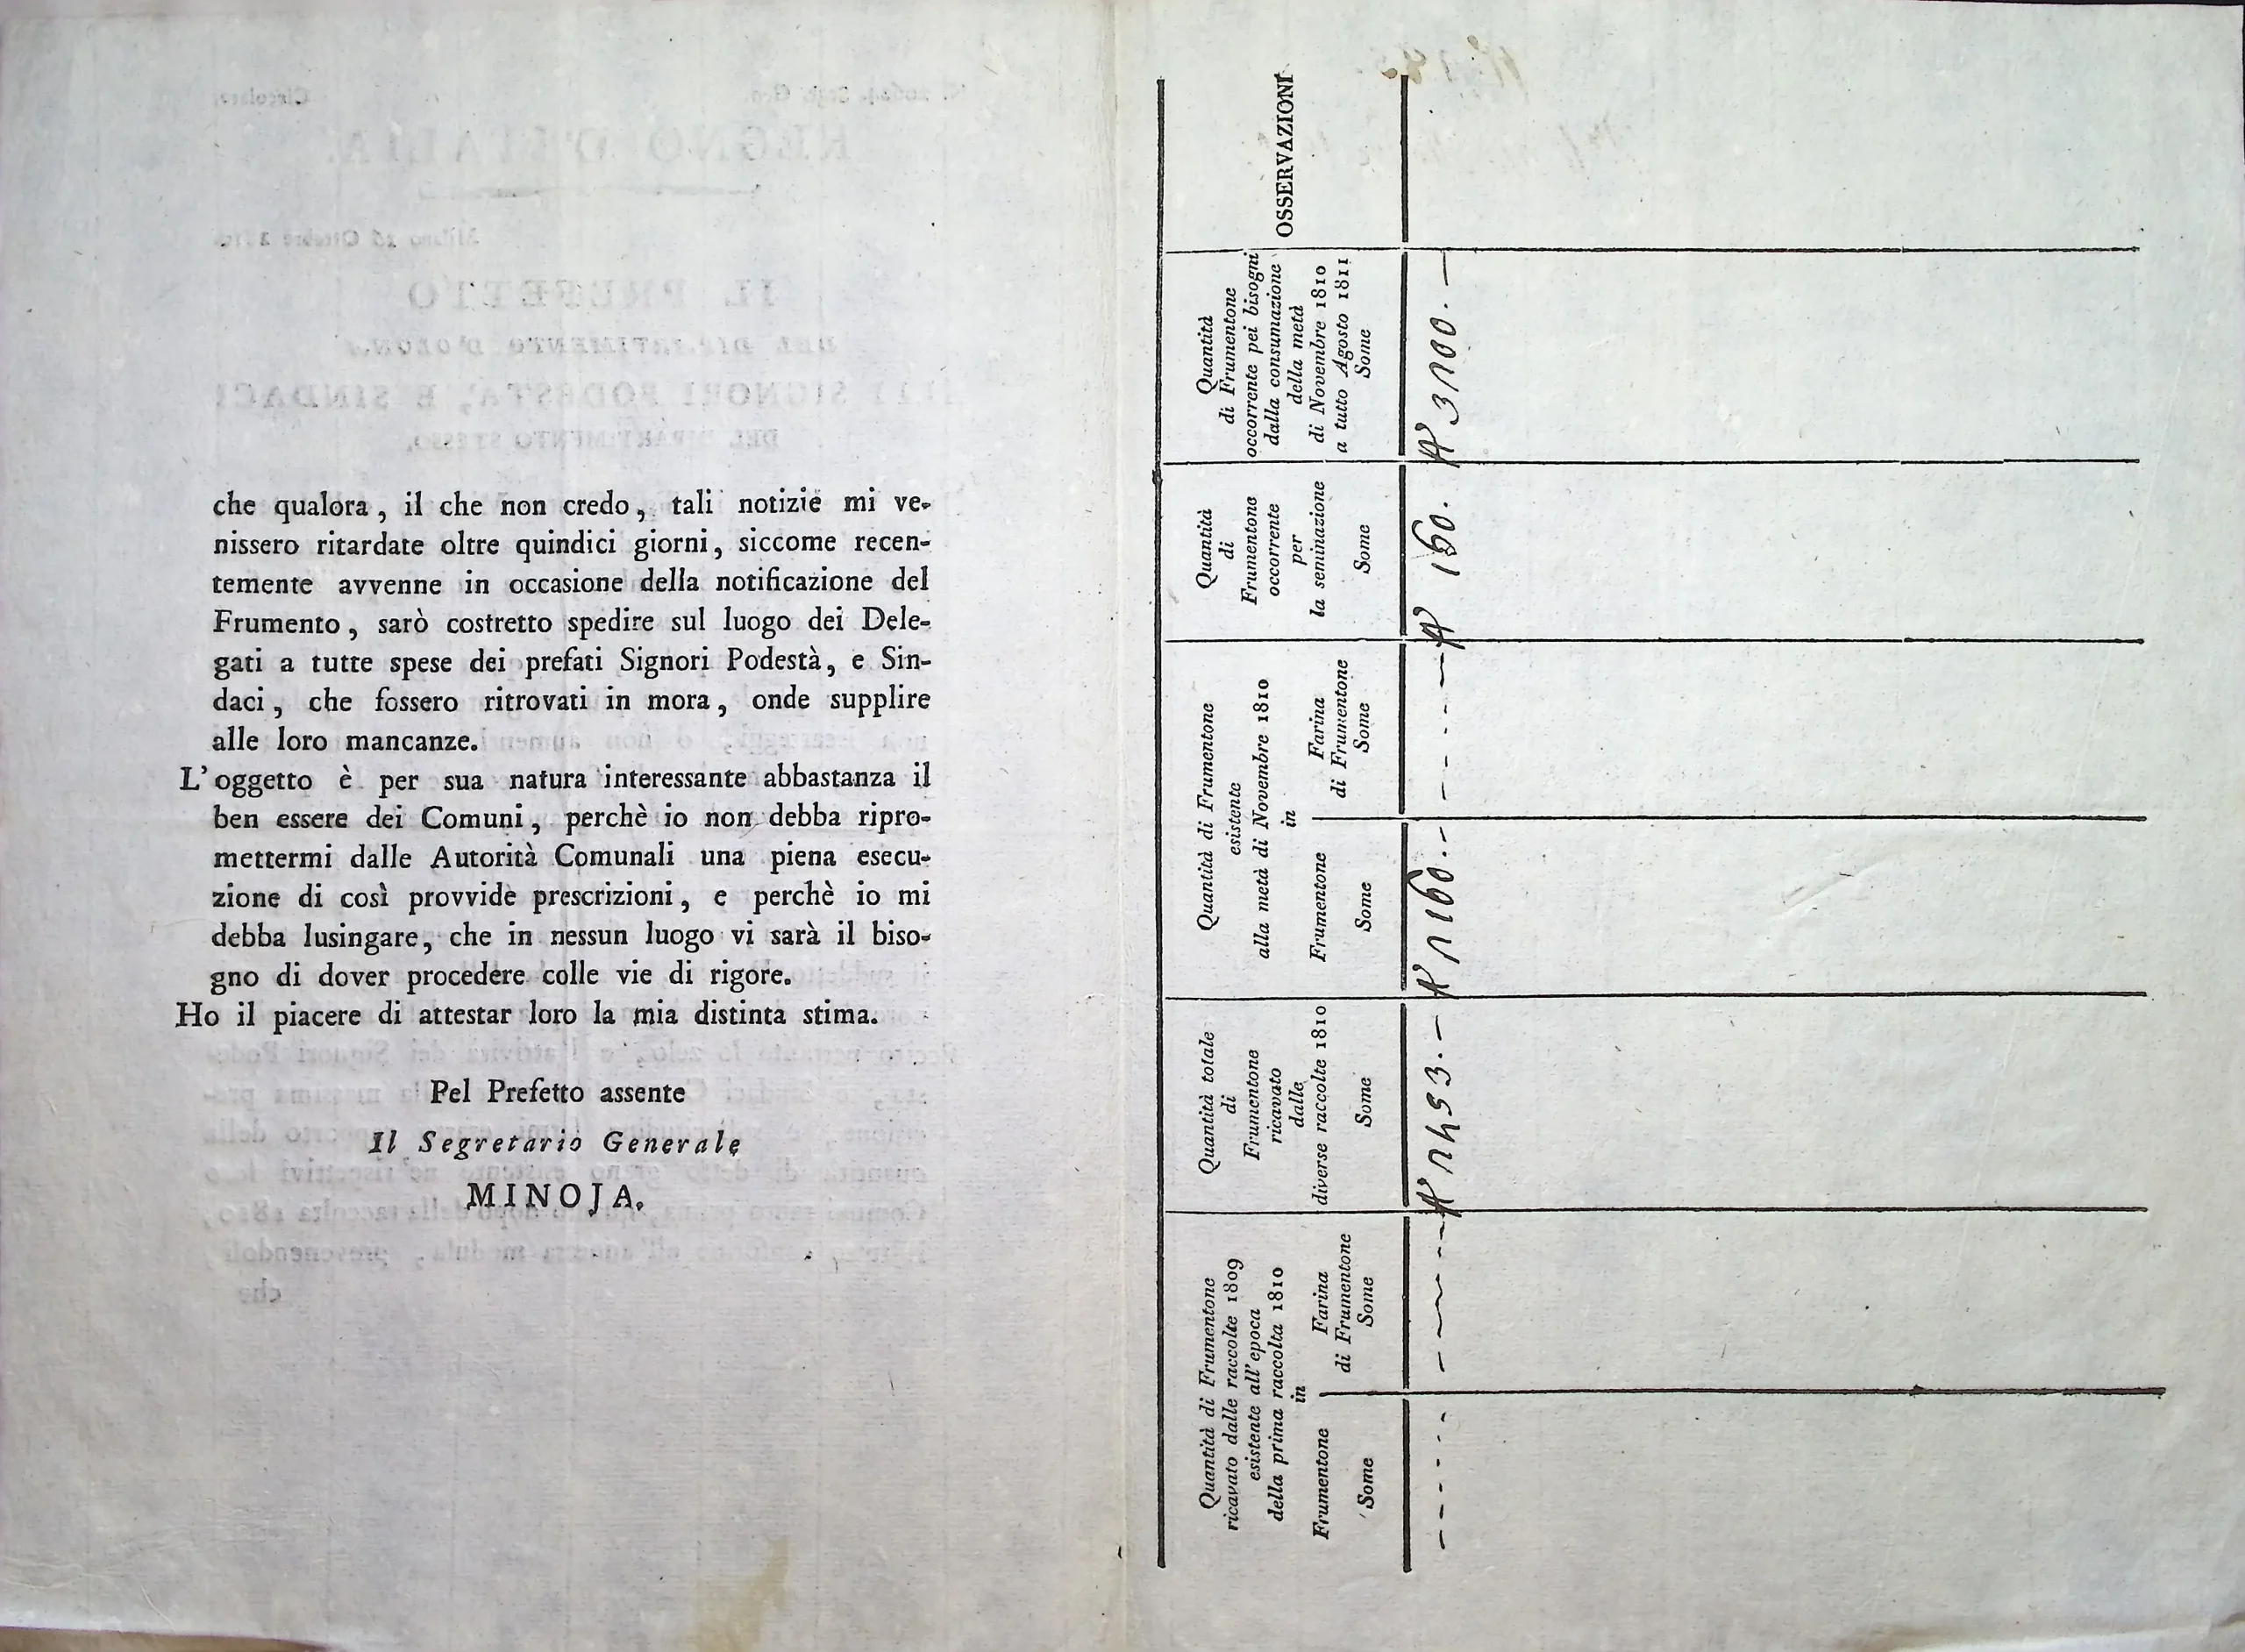 che qualora, il che non credo, tali notizie mi ve-
nissero ritardate oltre quindici giorni, siccome recen-
temente avvenne in occasione della notificazione del
Frumento, sarò costretto spedire sul luogo dei Dele-
gati a tutte spese dei prefati Signori Podestà, e Sin-
daci, che fossero ritrovati in mora, onde supplire
alle loro mancanze.
L'oggetto è per sua natura interessante abbastanza il
ben essere dei Comuni, perchè io non debba ripro-
mettermi dalle Autorità Comunali una piena esecu-
zione di così provvide prescrizioni, e perchè io mi
debba lusingare, che in nessun luogo vi sarà il biso-
gno di dover procedere colle vie di rigore.
Ho il piacere di attestar loro la mia distinta stima.
Pel Prefetto assente
Il Segretario Generale
MINOJA.
Quantità di Frumentone
ricavato dalle raccolte 1809
esistente all'epoca
della prima raccolta 1810
in
Frumentone
Some
Farina
di Frumentone
Some
Quantità totale
di
Frumentone
ricavato
dalle
diverse raccolte 1810
Some
Quantità di Frumentone
esistente
alla metà di Novembre 1810
in
Frumentone
Some
Farina
di Frumentone
Some
Quantità
di
Frumentone
occorrente
per
la seminazione
Some
Quantità
di Frumentone
occorrente pei bisogni
dalla consumazione
della metà
di Novembre 1810
a tutto Agosto 1811
Some
OSSERVAZIONI
160.